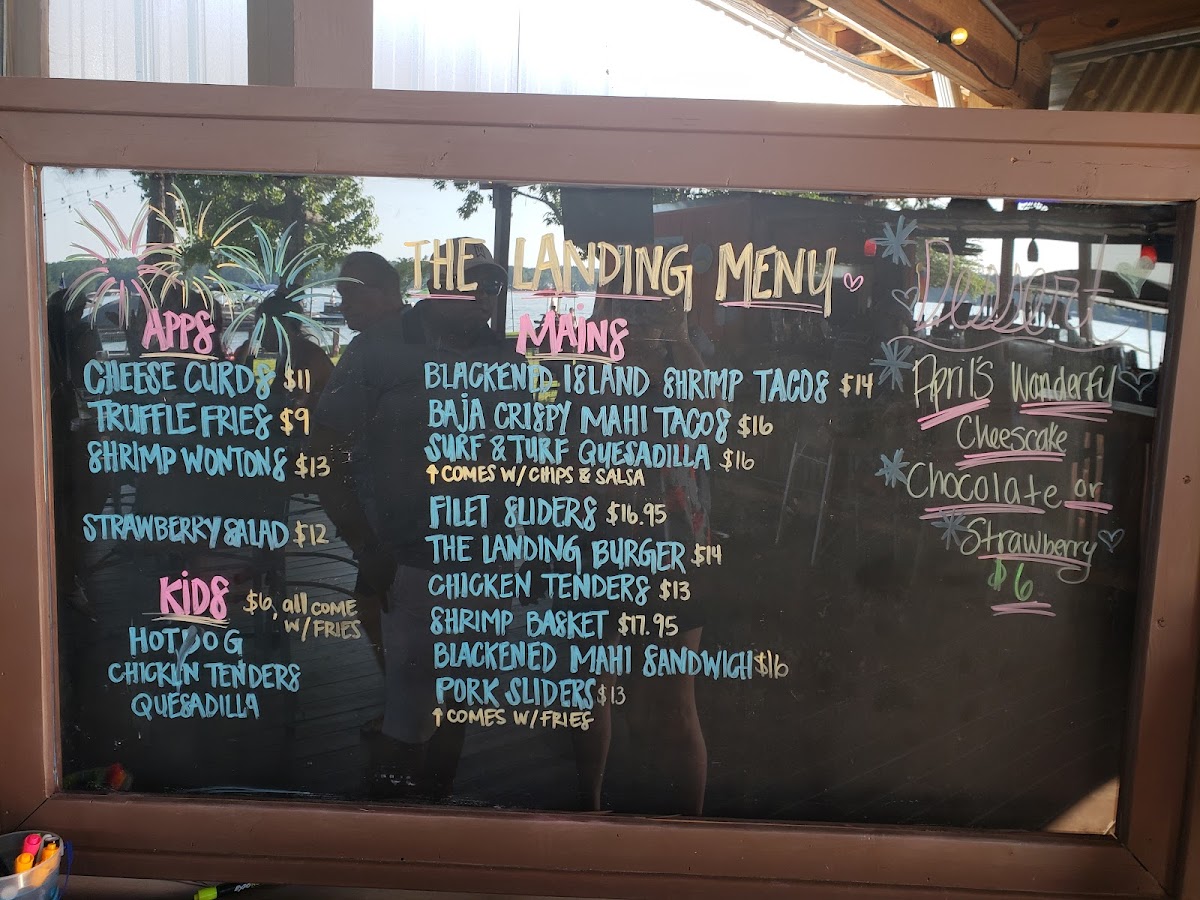 THE LANDING MENU
APPS
CHEESE CURDS $11
TRUFFLE FRIES $9
SHRIMP WONTONS $13
STRAWBERRY SALAD $12
KIDS $6, all COME
W/ FRIES
HOT DOG
CHICKEN TENDERS
QUESADILLA
MAINS
BLACKENED ISLAND SHRIMP TACOS $14
BAJA CRISPY MAHI TACOS $16
SURF & TURF QUESADILLA $16
↑ COMES W/ CHIPS & SALSA
FILET SLIDERS $16.95
THE LANDING BURGER $14
CHICKEN TENDERS $13
SHRIMP BASKET $17.95
BLACKENED MAHI SANDWICH $16
PORK SLIDERS $13
↑ COMES W/ FRIES
Dessert
April's Wonderful
Cheescake
Chocolate or
Strawberry
$6